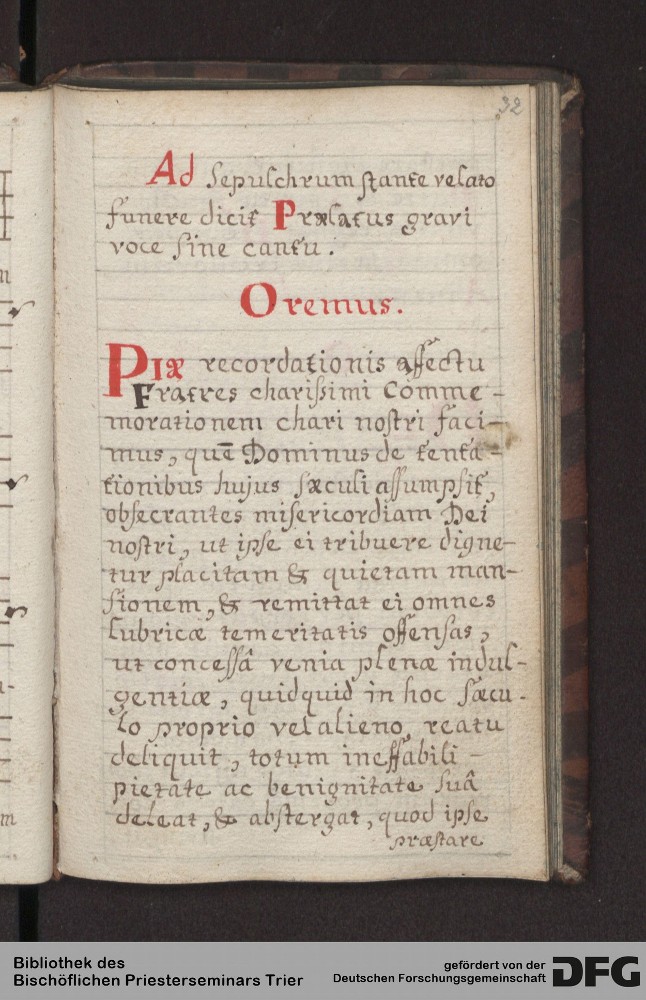 32
Ad Sepulchrum stante velato
funere dicit Prælatus gravi
voce sine cantu.
Oremus.
PIæ recordationis affectu
Fratres charissimi Comme-
morationem chari nostri faci-
mus, quē Dominus de tenta-
tionibus hujus sæculi assumpsit,
obsecrantes misericordiam Dei
nostri, ut ipse ei tribuere digne-
tur placitam & quietam man-
sionem, & remittat ei omnes
lubricæ temeritatis offensas,
ut concessâ venia plenæ indul-
gentiæ, quidquid in hoc sæcu-
lo proprio vel alieno, reatu
deliquit, totum ineffabili-
pietate ac benignitate suâ
deleat, & abstergat, quod ipse
præstare
Bibliothek des
Bischöflichen Priesterseminars Trier
gefördert von der
Deutschen Forschungsgemeinschaft
DFG